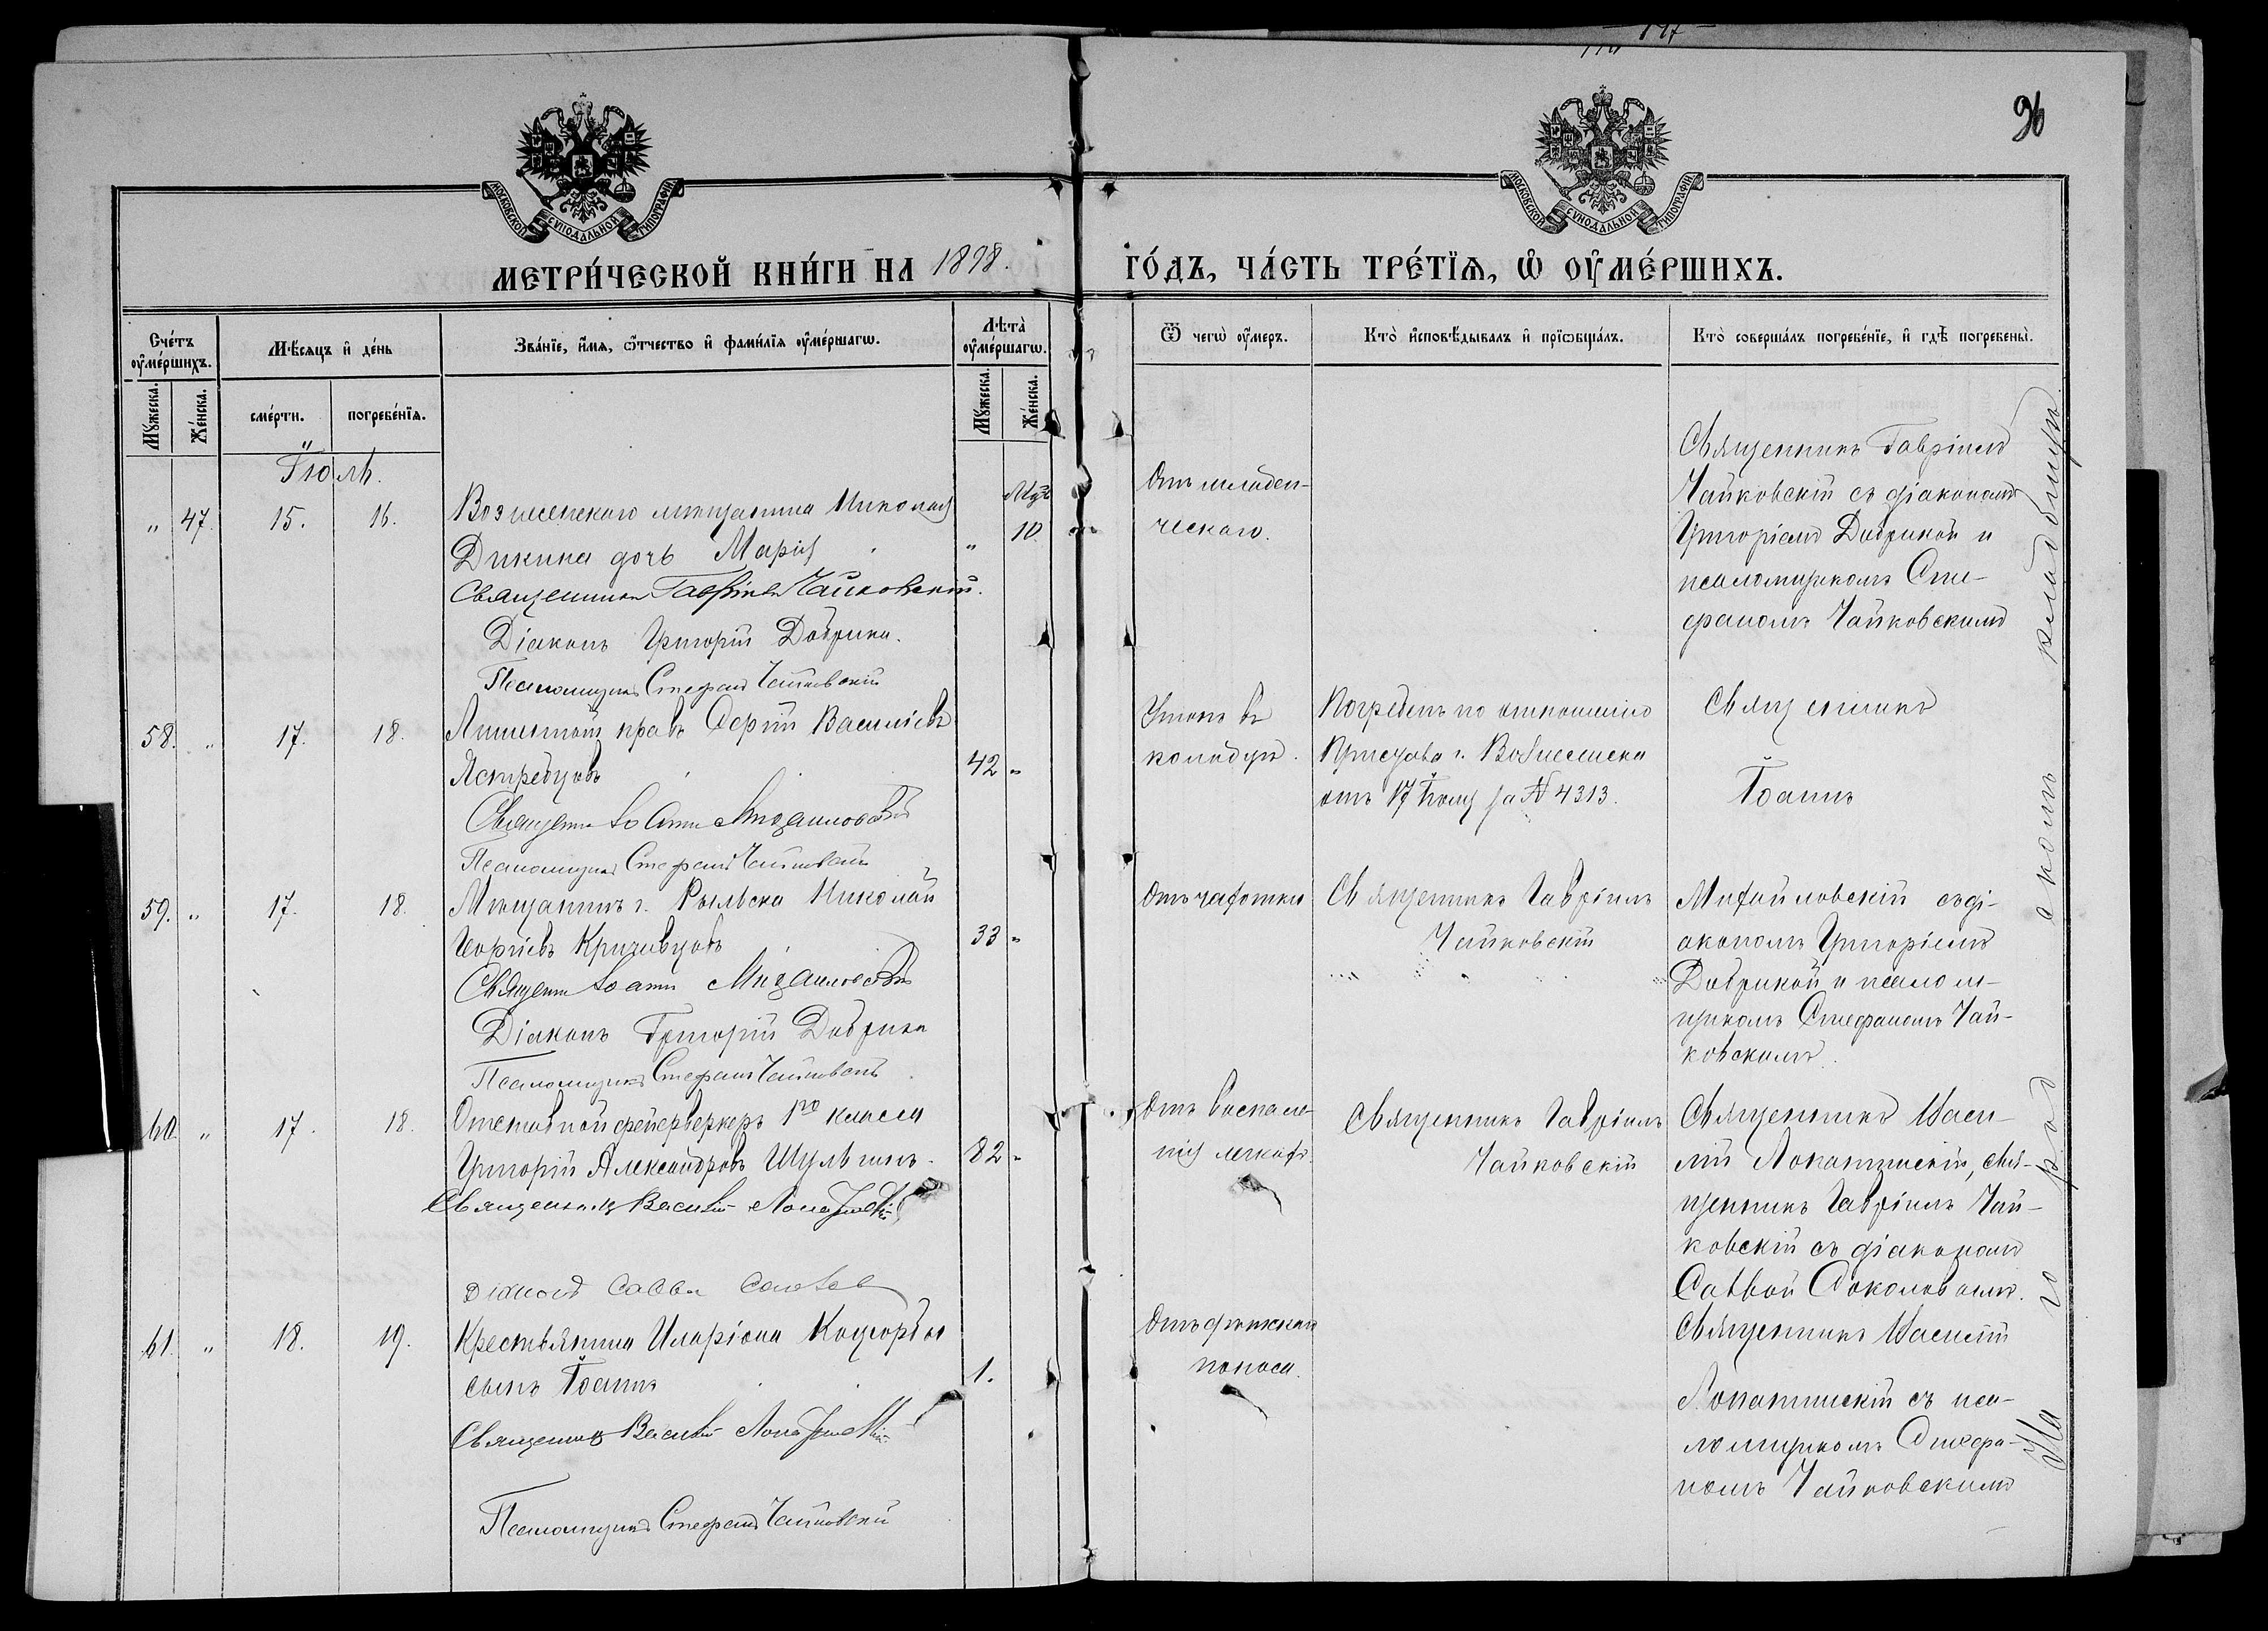 96
МОСКОВСКОЙ СУНОДАЛЬНОЙ ТИПОГРАФІИ
МОСКОВСКОЙ СУНОДАЛЬНОЙ ТИПОГРАФІИ
МЕТРИ́ЧЕСКОЙ КНИ́ГИ НА 1898. ГО́ДЪ, ЧА́СТЬ ТРЕ́ТІѦ, Ѡ ОУМЕ́РШИХЪ.
Сче́тъ оуме́ршихъ.
Мꙋ́жеска.
Же́нска.
Мѣ́сяцъ и де́нь
сме́рти.
погребе́нїѧ.
Зва́нїе, и́мѧ, ѻ҆́тчество и фами́лїѧ оуме́ршагѡ.
Лѣ́та оуме́ршагѡ.
Мꙋ́жеска.
Же́нска.
Ѿ чегѡ̀ оу́меръ.
Кто̀ исповѣ́дывалъ и прїѡбща́лъ.
Кто̀ соверша́лъ погребе́нїе, и гдѣ̀ погребены̀.
Іюль.
„ 47. 15. 16. Вознесенскаго мѣщанина Николая
Дикина дочь Марія „ 10
Священникъ Гавріилъ Чайковскій.
Діаконъ Григорій Добрика.
Псаломщикъ Стефанъ Чайковскій
Отъ младен-
ческаго.
Священникъ Гавріилъ
Чайковскій съ діакономъ
Григоріемъ Добрикой и
псаломщикомъ Сте-
фаномъ Чайковскимъ
58. „ 17. 18. Лишенный правъ Сергій Василіевъ
Ястребцовъ 42 „
Священ Іоаннъ Михайловскій
Псаломщикъ Стефанъ Чайковскій
Утонъ въ
колодцѣ.
Погребенъ по отношенію
Пристава г. Вознесенска
отъ 17 Іюля за № 4313.
Священникъ
Іоаннъ
59. „ 17. 18. Мѣщанинъ г. Рыльска Николай
Георгіевъ Кричевцовъ 33 „
Священ Іоаннъ Михайловскій
Діаконъ Григорій Добрика
Псаломщикъ Стефанъ Чайковскій
Отъ чахотки
Священникъ Гавріилъ
Чайковскій
Михайловскій съ ді-
акономъ Григоріемъ
Добрикой и псалом-
щикомъ Стефаномъ Чай-
ковскимъ.
60. „ 17. 18. Отставной фейерверкеръ 1го класса
Григорій Александровъ Шульгинъ. 82 „
Священникъ Василій Лопатинскій
Діаконъ Савва Соколов
Отъ воспале-
нія легкихъ.
Священникъ Гавріилъ
Чайковскій
Священникъ Васи-
лій Лопатинскій, свя-
щенникъ Гавріилъ Чай-
ковскій съ діакономъ
Саввой Соколовымъ.
61. „ 18. 19. Крестьянина Иларіона
сынъ Іоаннъ 1.
Священникъ Василій Лопатинскій
Псаломщикъ Стефанъ Чайковскій
Отъ дѣтскаго
поноса.
Священникъ Василій
Лопатинскій съ пса-
ломщикомъ Стефа-
номъ Чайковскимъ
На городскомъ кладбищѣ